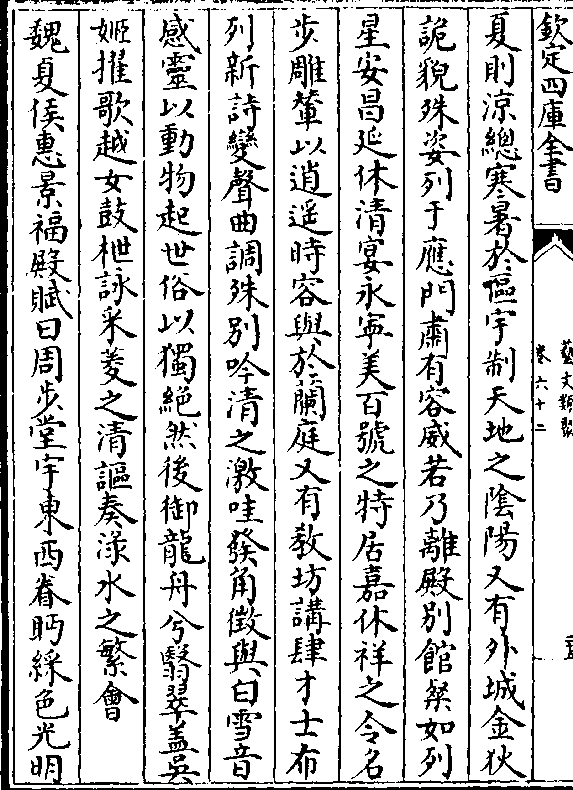 欽定四庫全書
藝文類聚
卷六十二
夏則涼總寒暑於區宇制天地之陰陽又有外城金狄
詭貌殊姿列于應門肅有容威若乃離殿別館粲如列
星安昌延休清宴永寧美百號之特居嘉休祥之令名
步雕輦以逍遥時容與於蘭庭又有教坊講肆才士布
列新詩變聲曲調殊別吟清之激哇發角徵與白雪音
感靈以動物起世俗以獨絕然後御龍舟兮翳翠盖吳
姬擢歌越女鼓枻詠采菱之清謳奏淥水之繁會
魏夏侯惠景福殿賦曰周步堂宇東西眷眄綵色光明